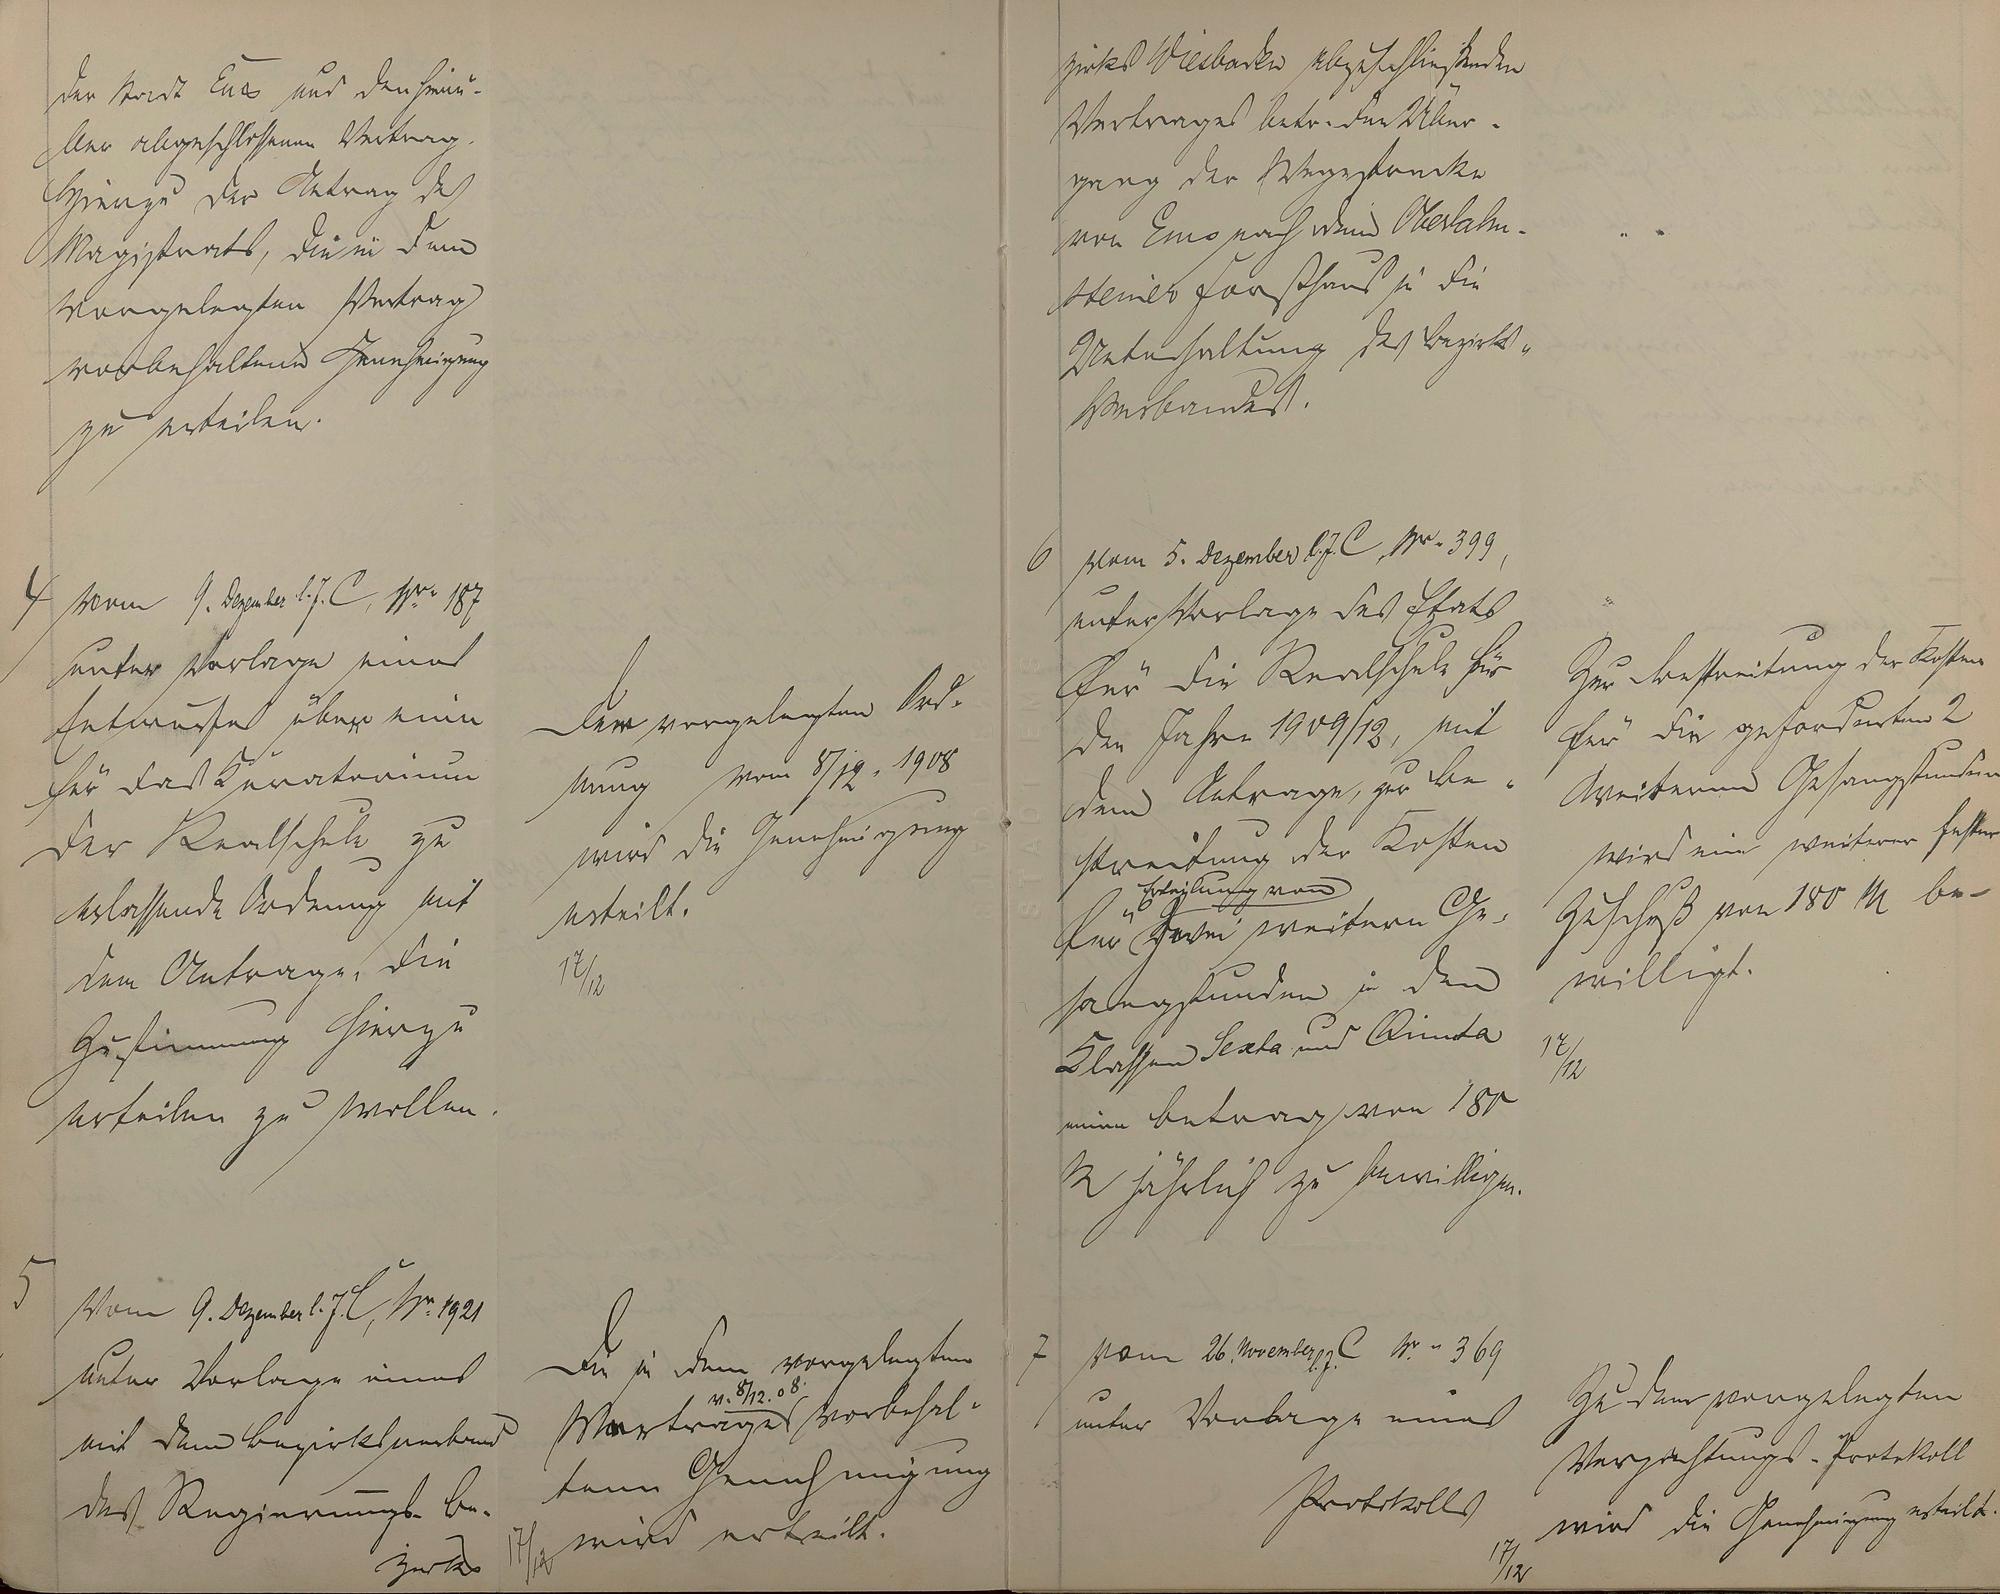 der Stadt Ems und den hierü-
ber abgeschlossenen Vertrag.
Hierzu der Antrag des
Magistrats, die in dem
vorgelegten Vertrag
vorbehaltene Genehmigung
zu erteilen.
4 vom 9. Dezember l. J. C, Nr. 187
unter Vorlage eines
Entwurfes über eine
für das Kuratorium
der Realschule zu
erlassende Ordnung mit
dem Antrage, die
Zustimmung hierzu
erteilen zu wollen.
Der vorgelegten Ord-
nung vom 8/12. 1908
wird die Genehmigung
erteilt.
17/12
5 Vom 9. Dezember l. J. C, Nr. 1921
unter Vorlage eines
mit dem Bezirksverband
des Regierungs-Be-
zirks
Die in dem vorgelegten
v. 8/12. 08.
Vertrages vorbehal-
tene Genehmigung
wird erteilt.
17/12
zirks Wiesbaden abzuschließenden
Vertrages betr. den Über-
gang der Wegestrecke
von Ems nach dem Oberlahn-
steiner Forsthaus in die
Unterhaltung des Bezirks-
Verbandes.
6 vom 5. Dezember l. J. C, Nr. 399,
unter Vorlage des Etats
für die Realschule für
die Jahre 1909/12, mit
dem Antrage, zur Be-
streitung der Kosten
Erteilung von
für zwei weitern Ge-
sangstunden in den
Klassen Sexta und Quinta
einen Betrag von 180
M jährlich zu bewilligen.
Zur Bestreitung der Kosten
für die geforderten 2
weiteren Gesangstunden
wird ein weiterer fester
Zuschuß von 180 M be-
willigt.
17/12
7 vom 26. November l. J. C Nr. 369
unter Vorlage eines
Protokolls
Zu dem vorgelegten
Verpachtungs-Protokoll
wird die Genehmigung erteilt.
17/12